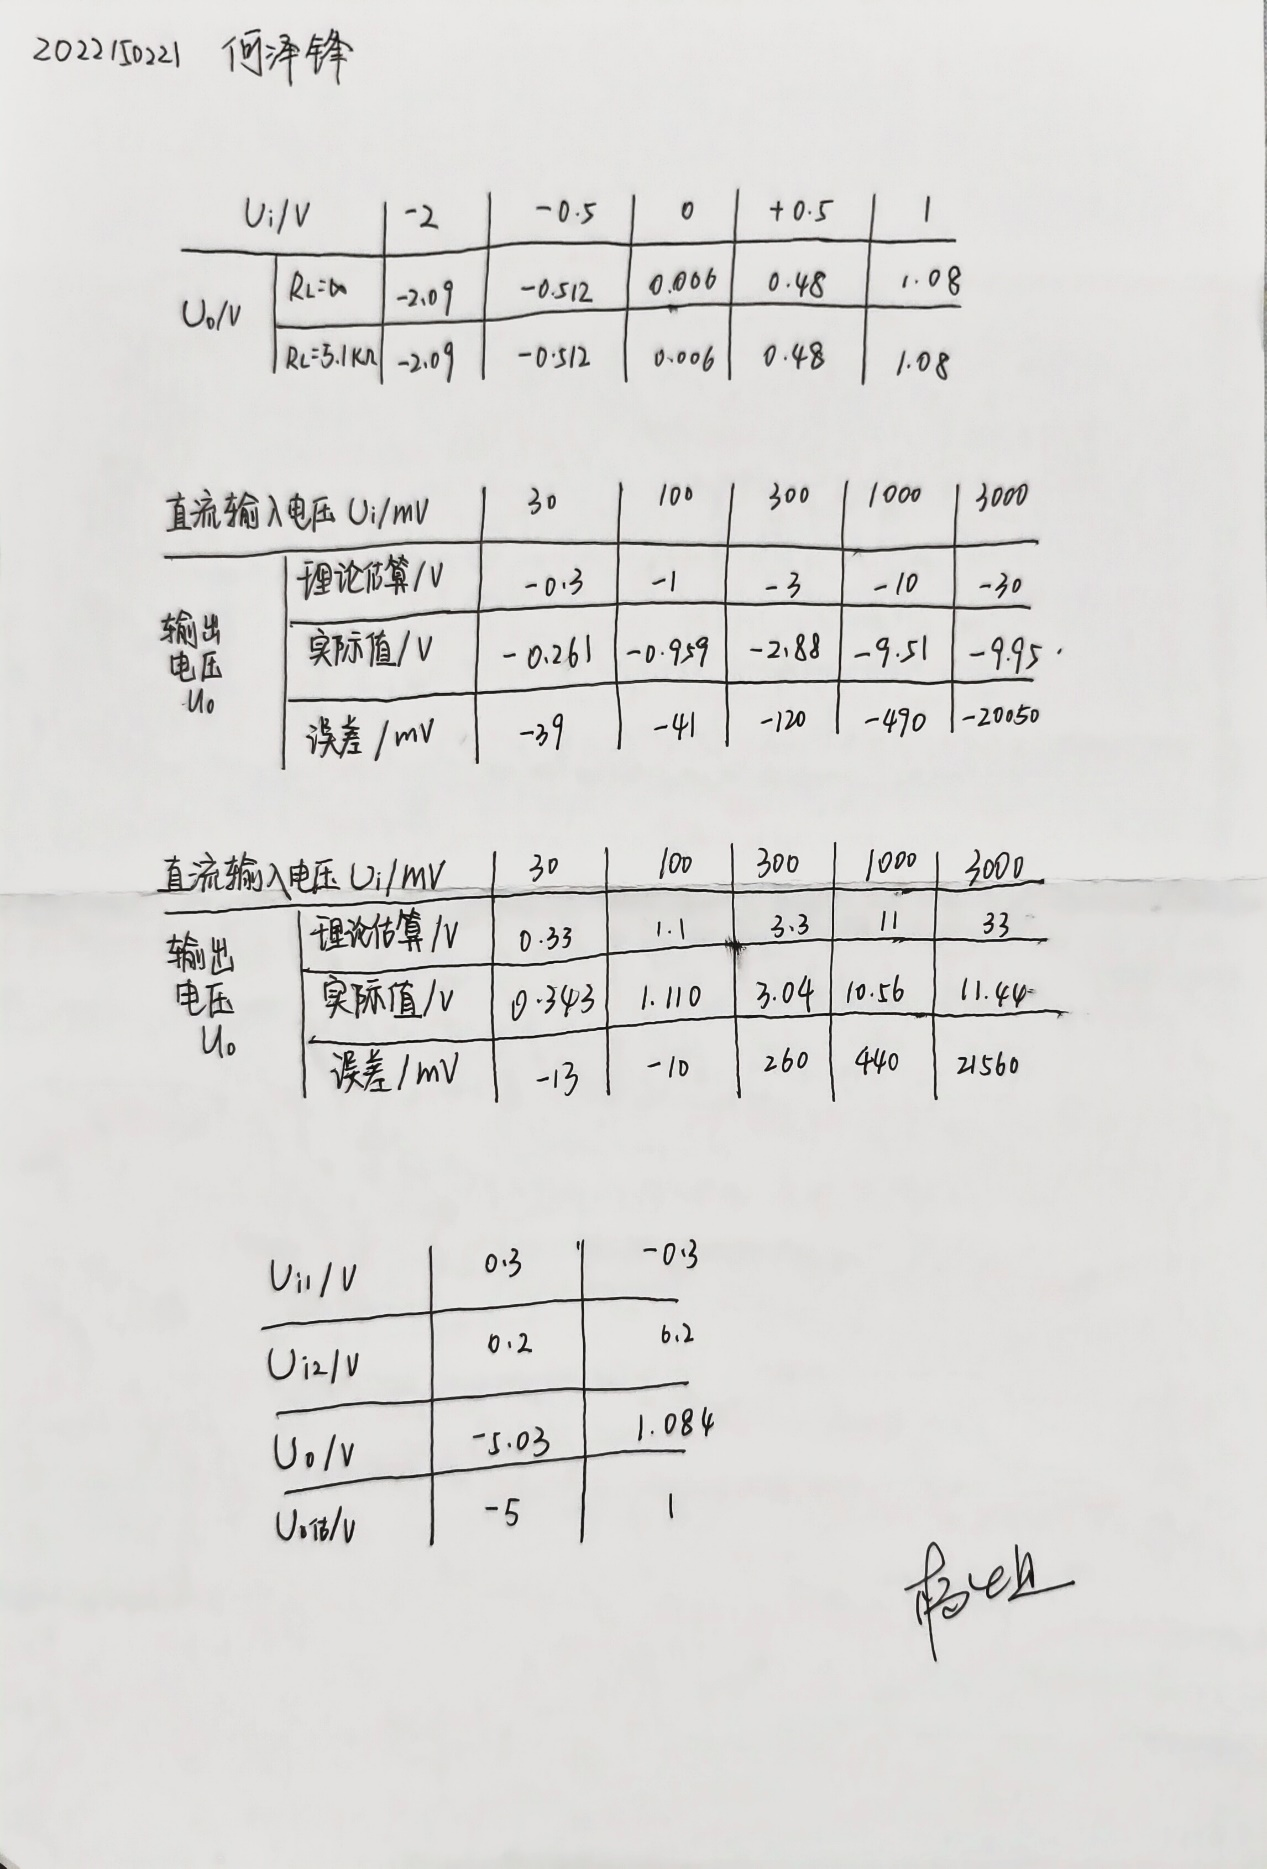 2022150221 何泽锋
Ui/V -2 -0.5 0 +0.5 1
U0/V RL=∞ -2.09 -0.512 0.006 0.48 1.08
RL=5.1KΩ -2.09 -0.512 0.006 0.48 1.08
直流输入电压 Ui/mV 30 100 300 1000 3000
输出电压U0 理论估算/V -0.3 -1 -3 -10 -30
实际值/V -0.261 -0.959 -2.88 -9.51 -9.95
误差/mV -39 -41 -120 -490 -20050
直流输入电压 Ui/mV 30 100 300 1000 3000
输出电压U0 理论估算/V 0.33 1.1 3.3 11 33
实际值/V 0.343 1.110 3.04 10.56 11.44
误差/mV -13 -10 260 440 21560
Ui1/V 0.3 -0.3
Ui2/V 0.2 0.2
U0/V -5.03 1.084
U0估/V -5 1